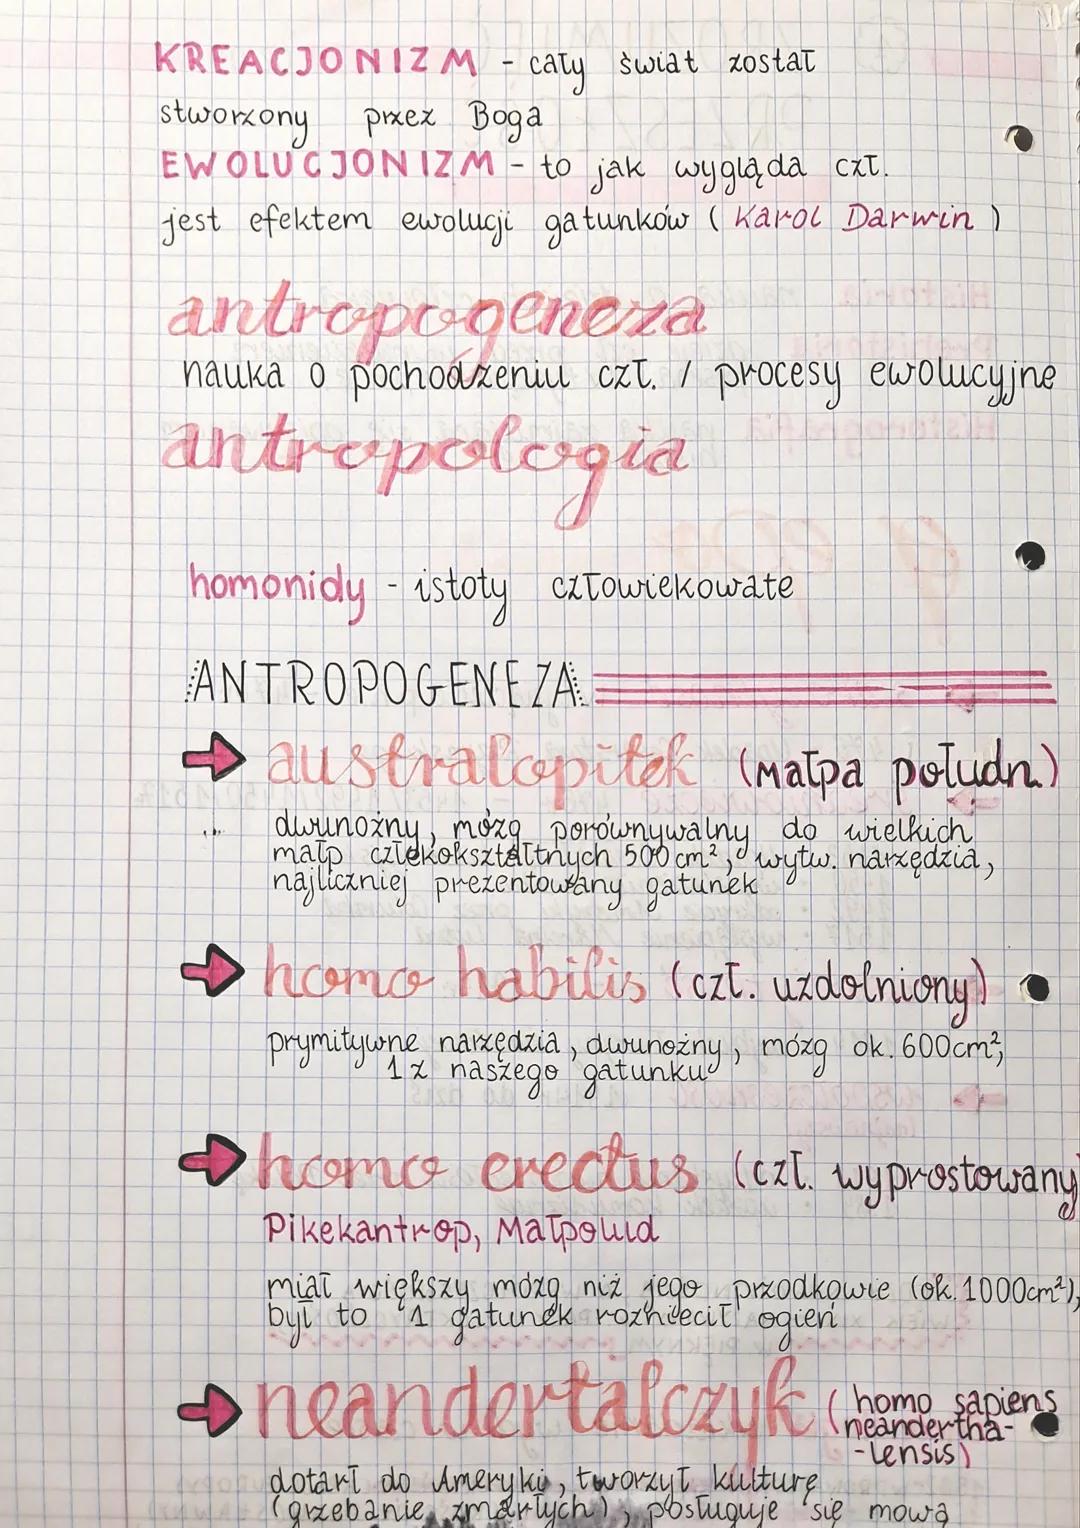 KREACJONIZM - cały świat został
stworzony przez Boga
EWOLUCJONIZM - to jak wygląda czł.
jest efektem ewolucji gatunków (Karol Darwin)
antropogeneza
nauka o pochodzeniu czł. / procesy ewolucyjne
antropologia
homonidy - istoty człowiekowate
ANTROPOGENEZA
australopitek (małpa połudn.)
dwunożny, mózg porównywalny do wielkich
małp człekokształtnych 500 cm², wytw. narzędzia,
najliczniej prezentowany gatunek
homo habilis (czł. uzdolniony)
prymitywne narzędzia, dwunożny, mózg ok. 600cm²,
1 z naszego gatunku
homo erectus (czł. wyprostowany)
Pikekantrop, Małpolud
miał większy mózg niż jego przodkowie (ok. 1000cm²),
był to 1 gatunek rozniecił ogień
neandertalczyk (homo sapiens
neandertha-
-lensis)
dotarł do Ameryki, tworzył kulturę
(grzebanie zmarłych), posługuje się mową